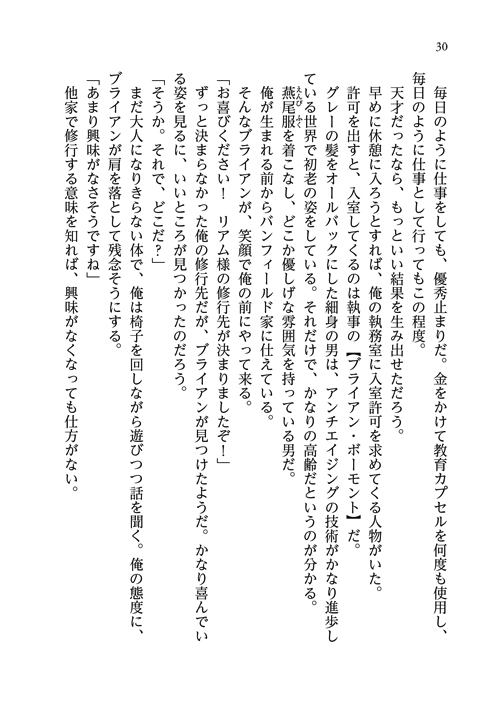 30
毎日のように仕事をしても、優秀止まりだ。金をかけて教育カプセルを何度も使用し、
毎日のように仕事として行ってもこの程度。
天才だったなら、もっといい結果を生み出せただろう。
早めに休憩に入ろうとすれば、俺の執務室に入室許可を求めてくる人物がいた。
許可を出すと、入室してくるのは執事の【ブライアン・ボーモント】だ。
グレーの髪をオールバックにした細身の男は、アンチエイジングの技術がかなり進歩し
ている世界で初老の姿をしている。それだけで、かなりの高齢だというのが分かる。
燕尾服を着こなし、どこか優しげな雰囲気を持っている男だ。
俺が生まれる前からバンフィールド家に仕えている。
そんなブライアンが、笑顔で俺の前にやって来る。
「お喜びください！　リアム様の修行先が決まりましたぞ！」
ずっと決まらなかった俺の修行先だが、ブライアンが見つけたようだ。かなり喜んでい
る姿を見るに、いいところが見つかったのだろう。
「そうか。それで、どこだ？」
まだ大人になりきらない体で、俺は椅子を回しながら遊びつつ話を聞く。俺の態度に、
ブライアンが肩を落として残念そうにする。
「あまり興味がなさそうですね」
他家で修行する意味を知れば、興味がなくなっても仕方がない。